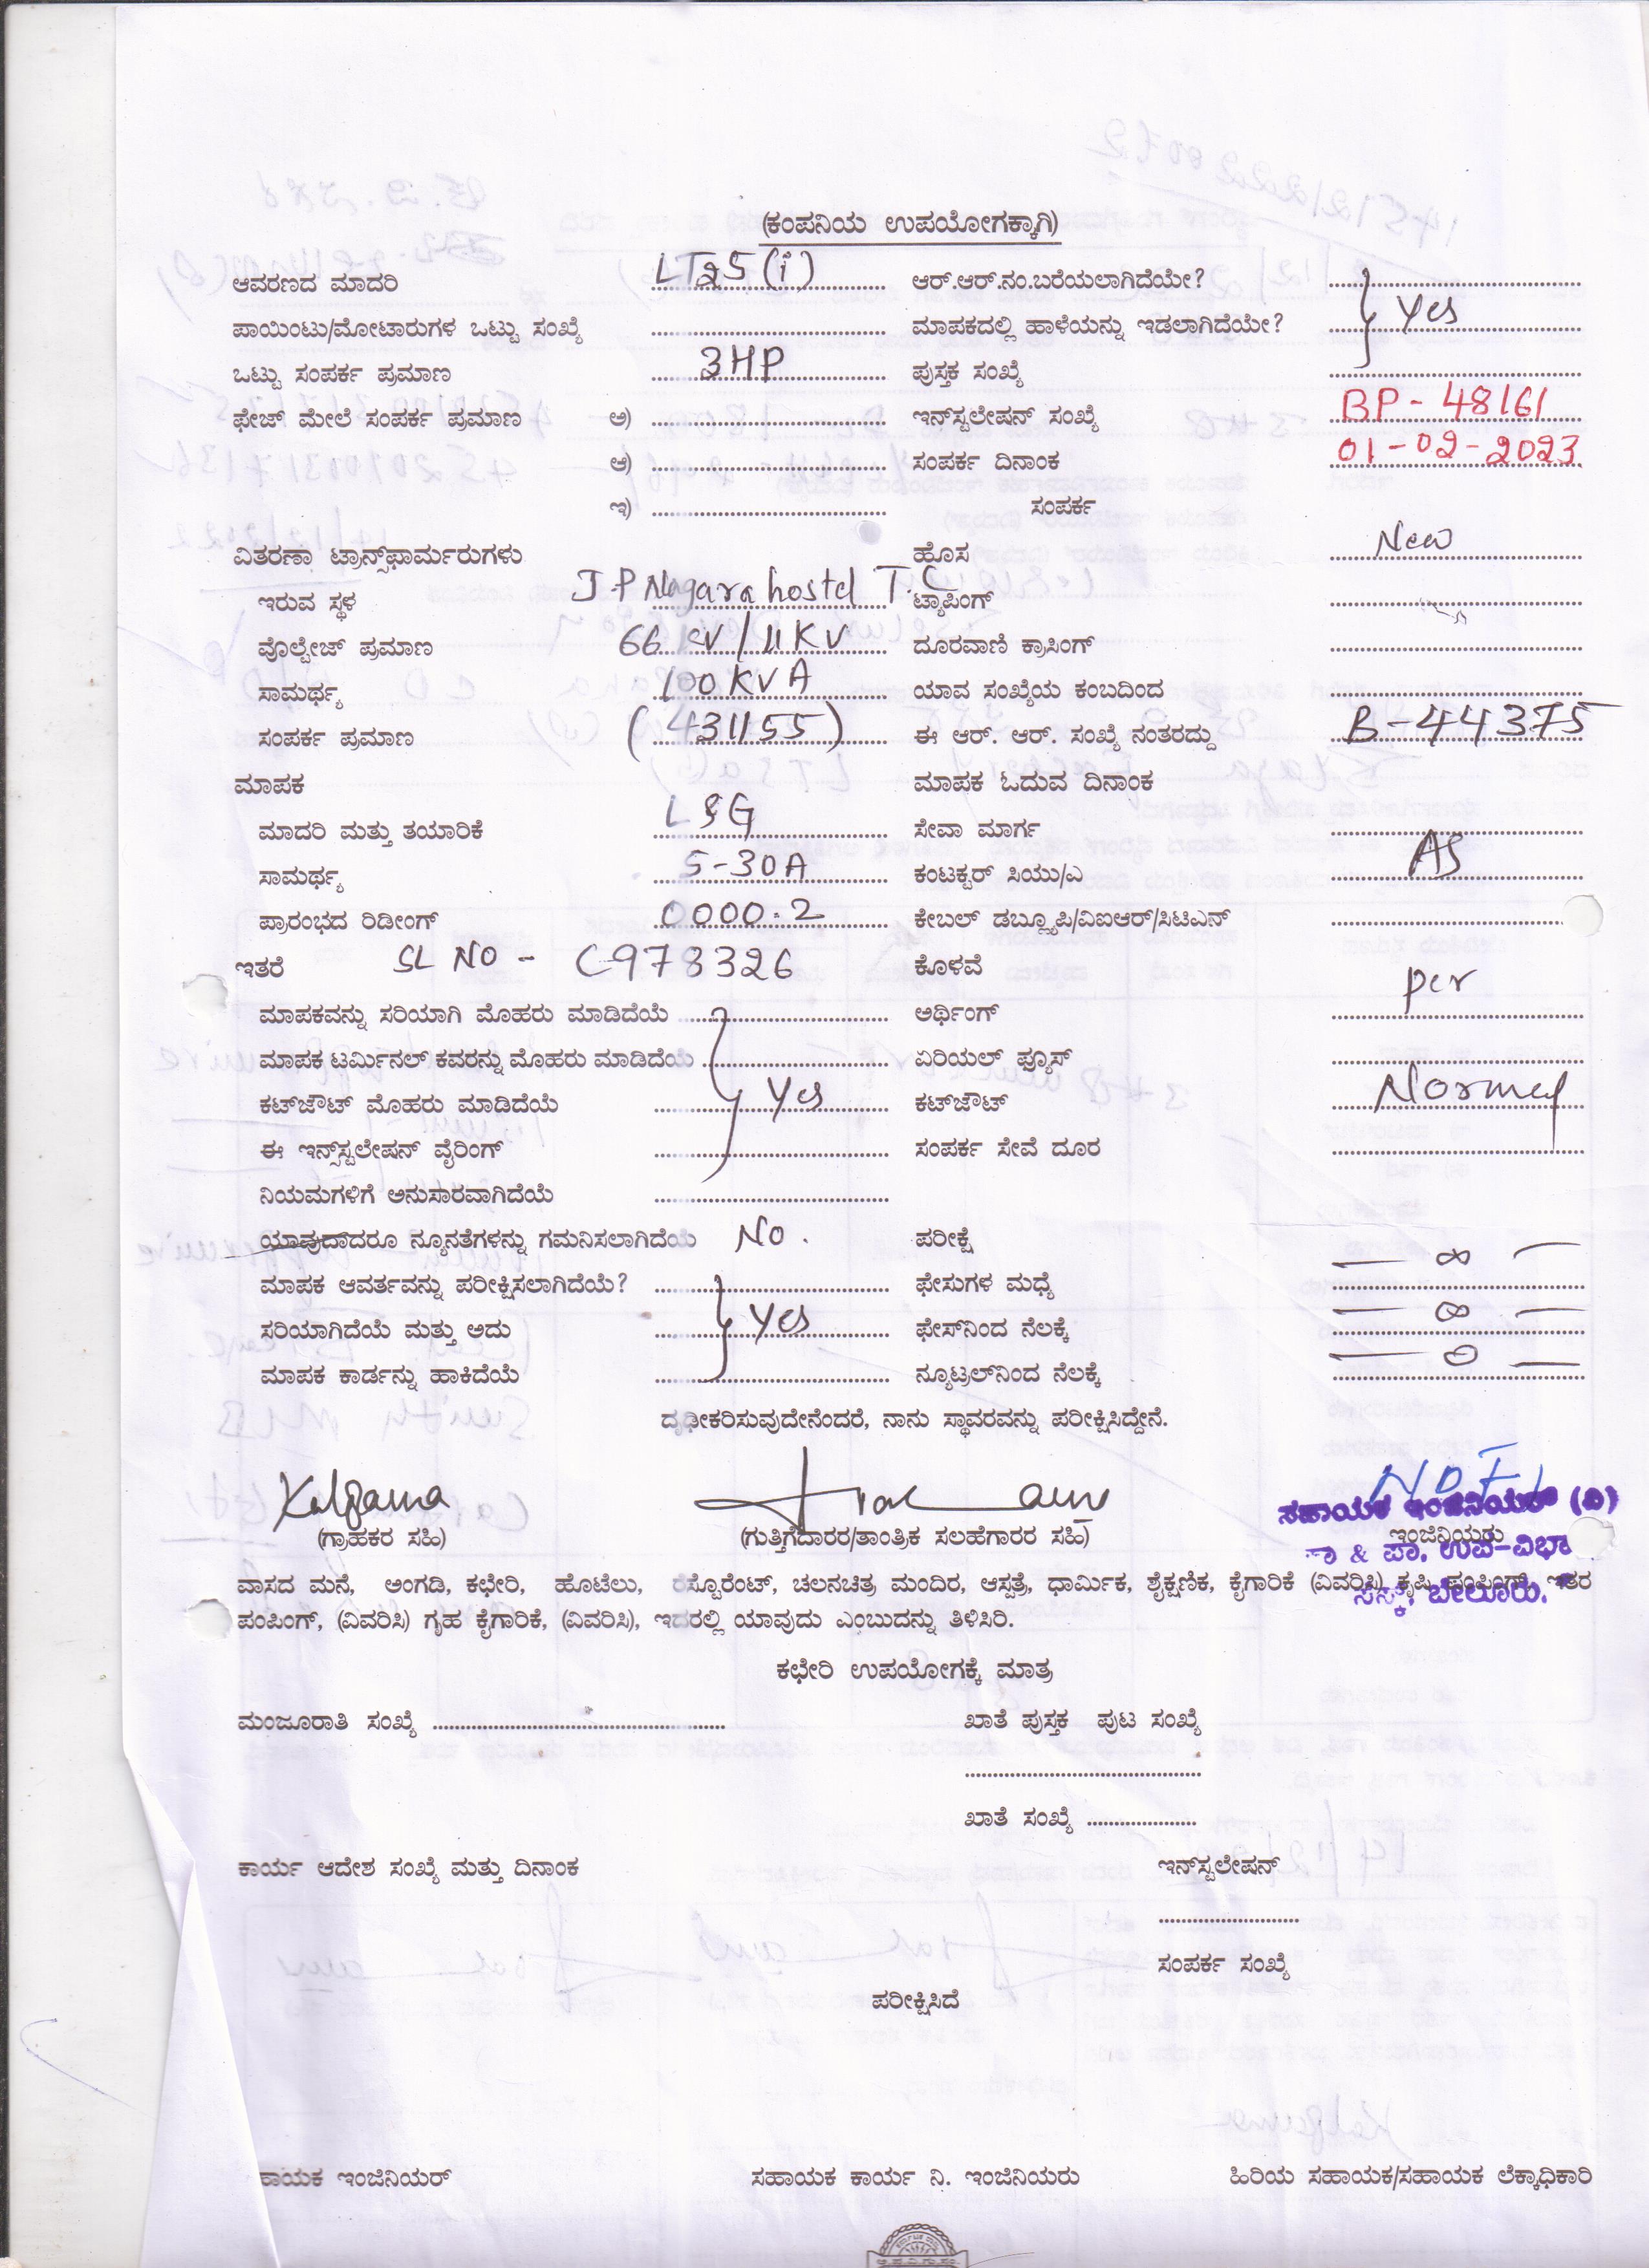 (ಕಂಪನಿಯ ಉಪಯೋಗಕ್ಕಾಗಿ)
ಆವರಣದ ಮಾದರಿ LT25 (i) ಆರ್.ಆರ್.ನಂ.ಬರೆಯಲಾಗಿದೆಯೇ?
ಪಾಯಿಂಟು/ಮೋಟಾರುಗಳ ಒಟ್ಟು ಸಂಖ್ಯೆ ಮಾಪಕದಲ್ಲಿ ಹಾಳೆಯನ್ನು ಇಡಲಾಗಿದೆಯೇ? Yes
ಒಟ್ಟು ಸಂಪರ್ಕ ಪ್ರಮಾಣ 3HP ಪುಸ್ತಕ ಸಂಖ್ಯೆ
ಫೇಜ್ ಮೇಲೆ ಸಂಪರ್ಕ ಪ್ರಮಾಣ ಅ) ಇನ್‌ಸ್ಟಲೇಷನ್ ಸಂಖ್ಯೆ BP - 48161
ಆ) ಸಂಪರ್ಕ ದಿನಾಂಕ 01-02-2023
ಇ) ಸಂಪರ್ಕ
ವಿತರಣಾ ಟ್ರಾನ್ಸ್‌ಫಾರ್ಮರುಗಳು ಹೊಸ New
ಇರುವ ಸ್ಥಳ J P Nagara hostel T.C ಟ್ಯಾಪಿಂಗ್
ವೊಲ್ಟೇಜ್ ಪ್ರಮಾಣ 66 KV / 11 KV ದೂರವಾಣಿ ಕ್ರಾಸಿಂಗ್
ಸಾಮರ್ಥ್ಯ 100 KVA ಯಾವ ಸಂಖ್ಯೆಯ ಕಂಬದಿಂದ
ಸಂಪರ್ಕ ಪ್ರಮಾಣ (431155) ಈ ಆರ್. ಆರ್. ಸಂಖ್ಯೆ ನಂತರದ್ದು B-44375
ಮಾಪಕ ಮಾಪಕ ಓದುವ ದಿನಾಂಕ
ಮಾದರಿ ಮತ್ತು ತಯಾರಿಕೆ L&G ಸೇವಾ ಮಾರ್ಗ
ಸಾಮರ್ಥ್ಯ 5-30A ಕಂಟಕ್ಟರ್ ಸಿಯು/ಎ AS
ಪ್ರಾರಂಭದ ರಿಡೀಂಗ್ 0000.2 ಕೇಬಲ್ ಡಬ್ಲ್ಯೂಪಿ/ವಿಐಆರ್/ಸಿಟಿಎನ್
ಇತರೆ SL NO - C978326 ಕೊಳವೆ per
ಮಾಪಕವನ್ನು ಸರಿಯಾಗಿ ಮೊಹರು ಮಾಡಿದೆಯೆ ಅರ್ಥಿಂಗ್
ಮಾಪಕ ಟರ್ಮಿನಲ್ ಕವರನ್ನು ಮೊಹರು ಮಾಡಿದೆಯೆ ಏರಿಯಲ್ ಫ್ಯೂಸ್
ಕಟ್‌ಜೌಟ್ ಮೊಹರು ಮಾಡಿದೆಯೆ Yes ಕಟ್‌ಜೌಟ್ Normal
ಈ ಇನ್ಸ್‌ಸ್ಟಲೇಷನ್ ವೈರಿಂಗ್ ಸಂಪರ್ಕ ಸೇವೆ ದೂರ
ನಿಯಮಗಳಿಗೆ ಅನುಸಾರವಾಗಿದೆಯೆ
ಯಾವುದಾದರೂ ನ್ಯೂನತೆಗಳನ್ನು ಗಮನಿಸಲಾಗಿದೆಯೆ NO. ಪರೀಕ್ಷೆ — ∞ —
ಮಾಪಕ ಆವರ್ತವನ್ನು ಪರೀಕ್ಷಿಸಲಾಗಿದೆಯೆ? ಫೇಸುಗಳ ಮಧ್ಯೆ — ∞ —
ಸರಿಯಾಗಿದೆಯೆ ಮತ್ತು ಅದು Yes ಫೇಸ್‌ನಿಂದ ನೆಲಕ್ಕೆ — 0 —
ಮಾಪಕ ಕಾರ್ಡನ್ನು ಹಾಕಿದೆಯೆ ನ್ಯೂಟ್ರಲ್‌ನಿಂದ ನೆಲಕ್ಕೆ
ದೃಢೀಕರಿಸುವುದೇನೆಂದರೆ, ನಾನು ಸ್ಥಾವರವನ್ನು ಪರೀಕ್ಷಿಸಿದ್ದೇನೆ.
ಸಹಾಯಕ ಇಂಜಿನಿಯರ್ (ವಿ)
(ಗ್ರಾಹಕರ ಸಹಿ) (ಗುತ್ತಿಗೆದಾರರ/ತಾಂತ್ರಿಕ ಸಲಹೆಗಾರರ ಸಹಿ) ಇಂಜಿನಿಯರು
& ಪಾ. ಉಪ-ವಿಭಾ
ವಾಸದ ಮನೆ, ಅಂಗಡಿ, ಕಛೇರಿ, ಹೊಟೆಲು, ರೆಸ್ಟೊರೆಂಟ್, ಚಲನಚಿತ್ರ ಮಂದಿರ, ಆಸ್ಪತ್ರೆ, ಧಾರ್ಮಿಕ, ಶೈಕ್ಷಣಿಕ, ಕೈಗಾರಿಕೆ (ವಿವರಿಸಿ) ಕೃಷಿ ಪಂಪಿಂಗ್, ಇತರ
ಬೇಲೂರು.
ಪಂಪಿಂಗ್, (ವಿವರಿಸಿ) ಗೃಹ ಕೈಗಾರಿಕೆ, (ವಿವರಿಸಿ), ಇದರಲ್ಲಿ ಯಾವುದು ಎಂಬುದನ್ನು ತಿಳಿಸಿರಿ.
ಕಛೇರಿ ಉಪಯೋಗಕ್ಕೆ ಮಾತ್ರ
ಮಂಜೂರಾತಿ ಸಂಖ್ಯೆ ಖಾತೆ ಪುಸ್ತಕ ಪುಟ ಸಂಖ್ಯೆ
ಖಾತೆ ಸಂಖ್ಯೆ
ಕಾರ್ಯ ಆದೇಶ ಸಂಖ್ಯೆ ಮತ್ತು ದಿನಾಂಕ ಇನ್‌ಸ್ಟಲೇಷನ್
ಸಂಪರ್ಕ ಸಂಖ್ಯೆ
ಪರೀಕ್ಷಿಸಿದೆ
ಹಾಯಕ ಇಂಜಿನಿಯರ್ ಸಹಾಯಕ ಕಾರ್ಯ ನಿ. ಇಂಜಿನಿಯರು ಹಿರಿಯ ಸಹಾಯಕ/ಸಹಾಯಕ ಲೆಕ್ಕಾಧಿಕಾರಿ